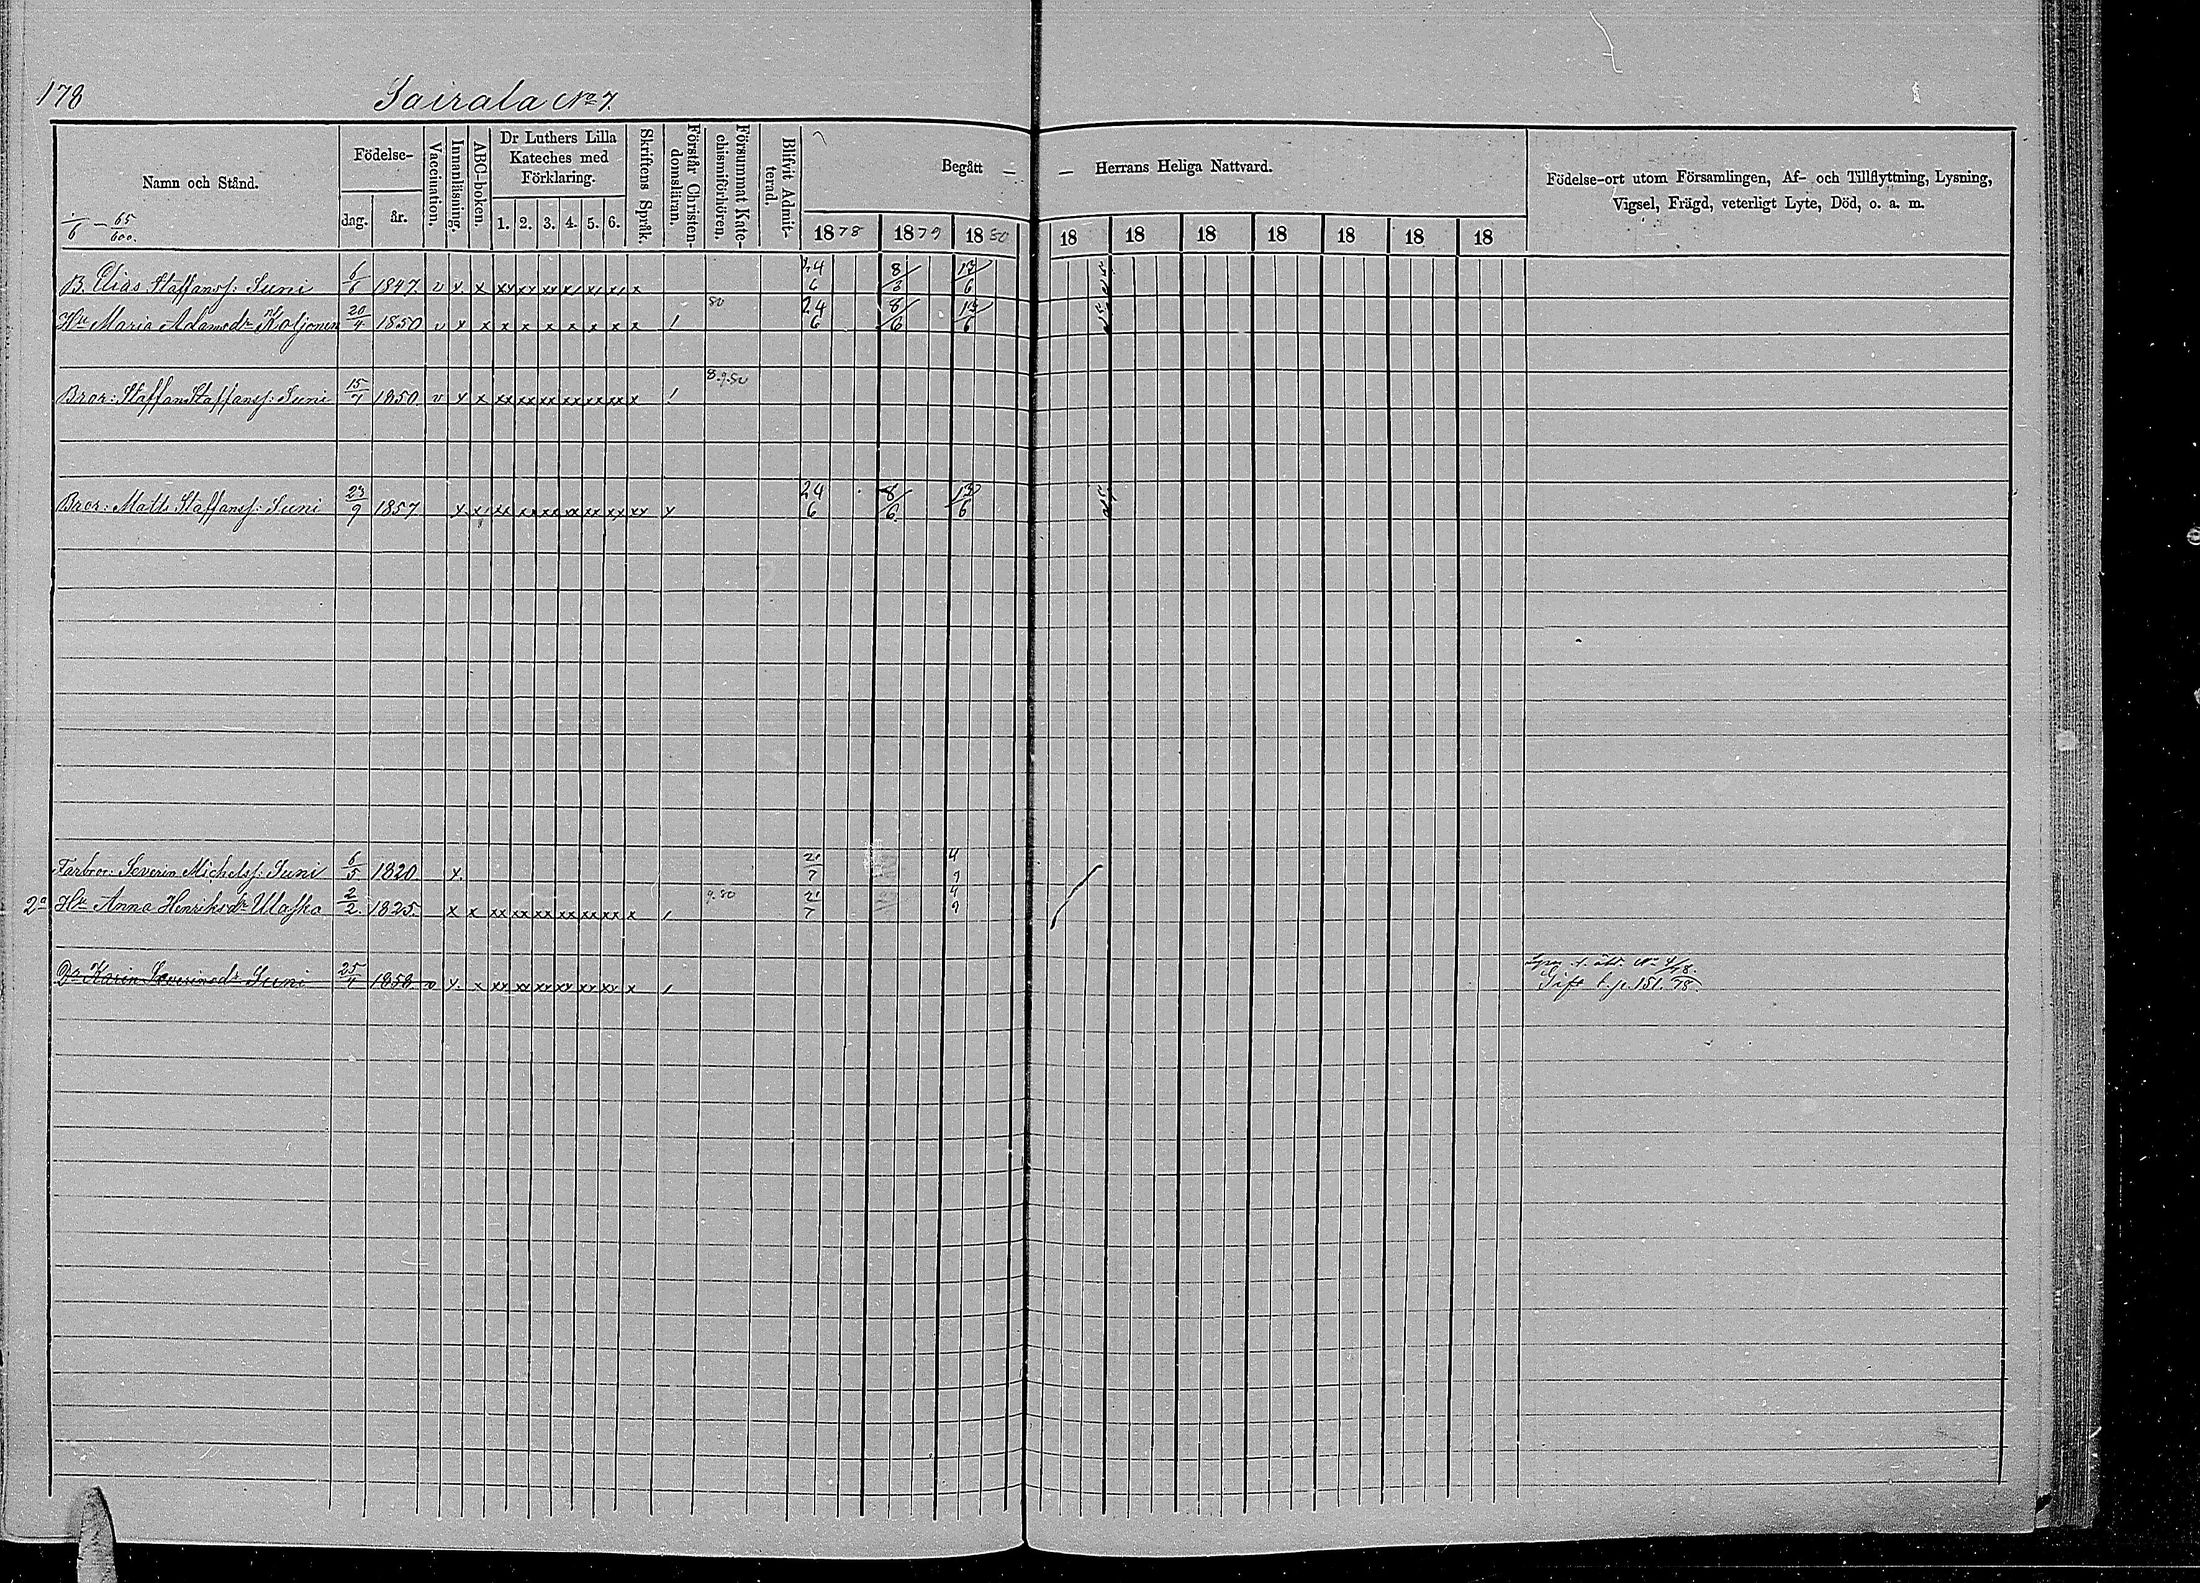 178 Sairala No 7.
Namn och Stånd.
Födelse-
dag. år.
Vaccination.
Innanläsning.
ABC-boken.
Dr Luthers Lilla
Kateches med
Förklaring.
1. 2. 3. 4. 5. 6.
Skriftens Språk.
Förstår Christen-
domsläran.
Försummat Kate-
chismiförhören.
Blifvit Admit-
terad
Begått — — Herrans Heliga Nattvard.
1878 1879 1880 18 18 18 18 18 18 18
Födelse-ort utom Församlingen, Af- och Tillflyttning, Lysning,
Vigsel, Frägd, veterligt Lyte, Död, o. a. m.
65/600.
B. Elias Staffanss: Suni 1847 v x x xx xx xx x x x x 24/6 8/6 13/6
Hu Maria Adamsdr Koljonen 20/4 1850 v x x x x x x x x x / 80 24/6 8/6 13/6
Bror: Staffan Staffanss: Suni 15/7 1850 v x x xx xx xx xx xx xx x / 8.9.80
Bror: Matts Staffanss: Suni 23/9 1857 x x xx xx xx xx xx xx xx x 24/6 8/6 13/6
Farbror: Severin Michelss: Suni 6/5 1820 x 21/7 4/9
2a Hu Anna Henriksdr Ulaska 2/2 1825. x x xx xx xx xx xx xx x / 9.80 21/7 4/9
Dr Karin Severinsdr Suni 25/4 1858 v x x xx xx xx xx xx xx x / No 4/78.
Gift t. p. 151. 78.